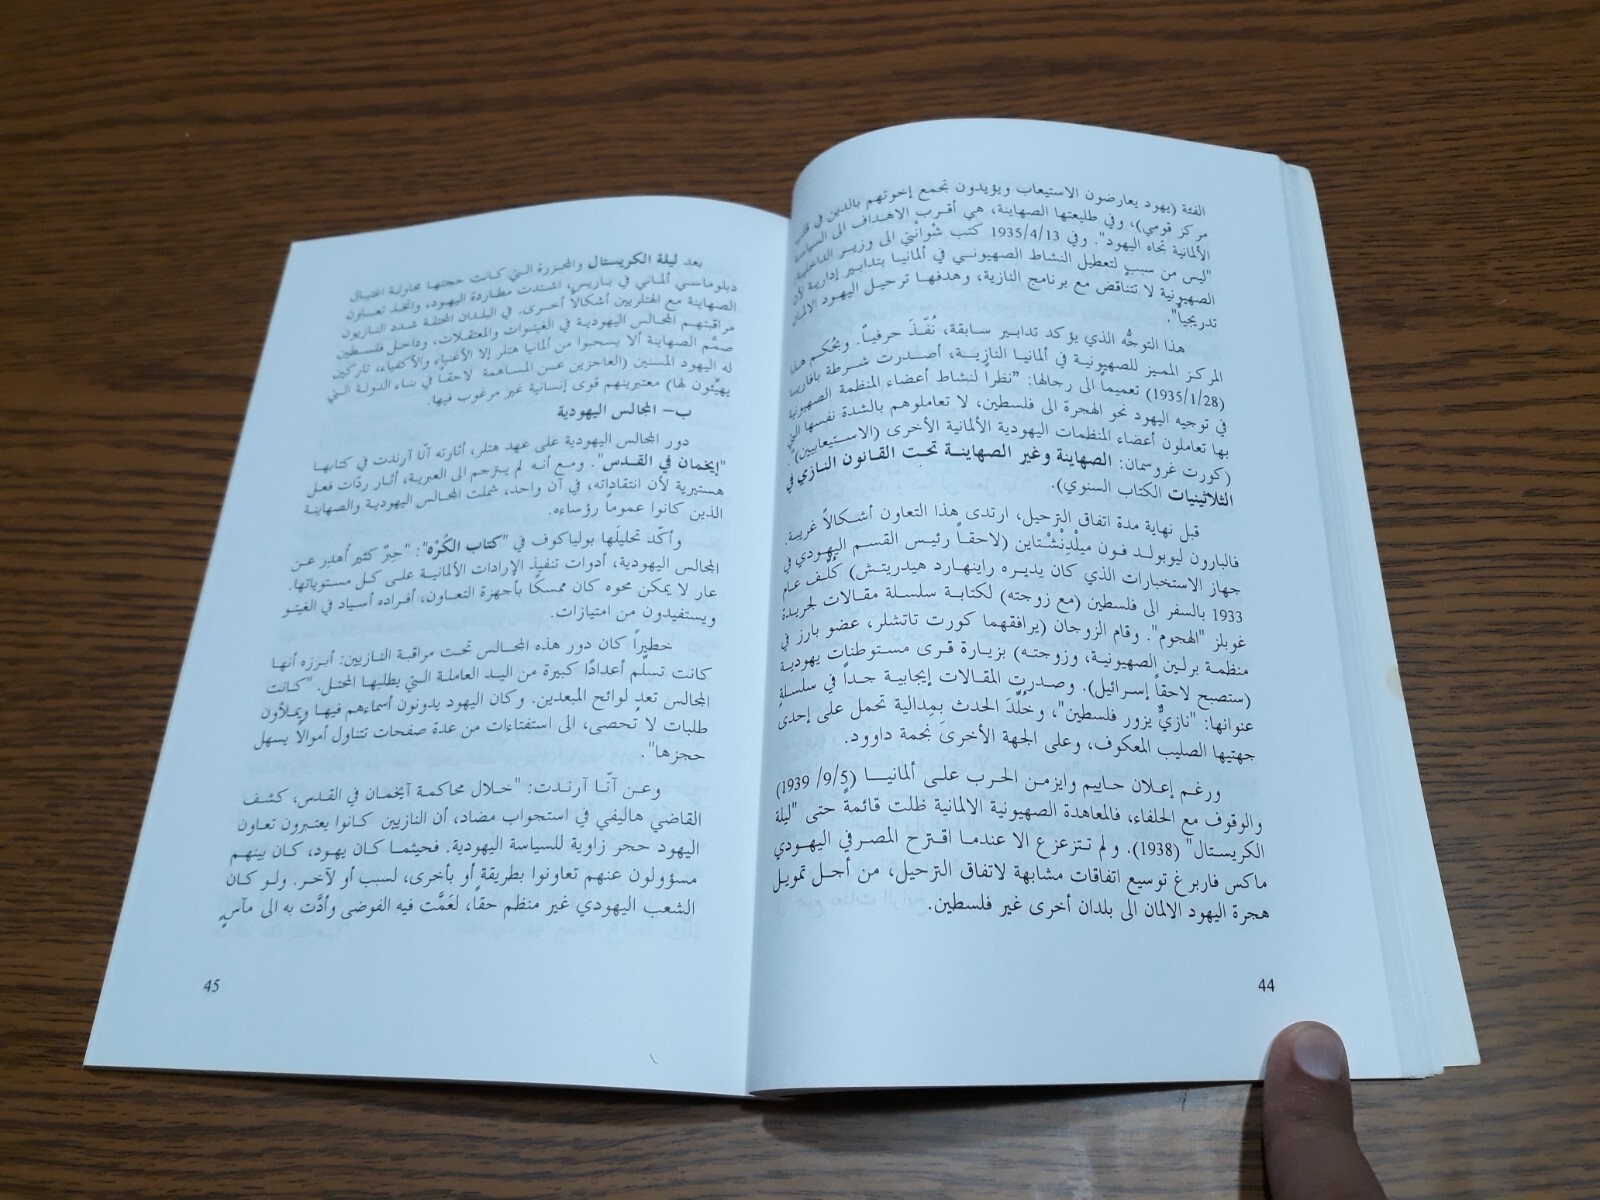 الفئة (يهود يعارضون الاستيعاب ويؤيدون تجمع إخوتهم بالدين في قلب
مركز قومي)، وفي طليعتها الصهاينة، هي أقرب الاهداف الى السياسة
الألمانية تجاه اليهود". وفي 1935/4/13 كتب شْوانْتي الى وزير الداخلية:
"ليس من سببٍ لتعطيل النشاط الصهيوني في ألمانيا بتدابير إدارية لأن
الصهيونية لا تتناقض مع برنامج النازية، وهدفها ترحيل اليهود الالمان
تدريجياً".
هذا التوجُّه الذي يؤكد تدابير سابقة، نُفّذَ حرفياً. وبحُكم هذا
المركز المميز للصهيونية في ألمانيا النازية، أصدرت شرطة بافاريا
(1935/1/28) تعميماً الى رجالها: "نظراً لنشاط أعضاء المنظمة الصهيونية
في توجيه اليهود نحو الهجرة الى فلسطين، لا تعاملوهم بالشدة نفسها التي
بها تعاملون أعضاء المنظمات اليهودية الألمانية الأخرى (الاستيعابيين)".
(كورت غروسمان: الصهاينة وغير الصهاينة تحت القانون النازي في
الثلاثينيات الكتاب السنوي).
قبل نهاية مدة اتفاق الترحيل، ارتدى هذا التعاون أشكالاً غريبة.
فالبارون ليوبولد فون ميلْدِنْشْتاين (لاحقاً رئيس القسم اليهودي في
جهاز الاستخبارات الذي كان يديره راينهارد هيدريتش) كُلّف عام
1933 بالسفر الى فلسطين (مع زوجته) لكتابة سلسلة مقالات لجريدة
غوبلز "الهجوم". وقام الزوجان (يرافقهما كورت تاتشلر، عضو بارز في
منظمة برلين الصهيونية، وزوجته) بزيارة قرى مستوطناتٍ يهودية
(ستصبح لاحقاً إسرائيل). وصدرت المقالات إيجابية جداً في سلسلةٍ
عنوانها: "نازيٌّ يزور فلسطين"، وخُلِّدَ الحدث بِمِدالية تحمل على إحدى
جهتيها الصليب المعكوف، وعلى الجهة الأخرى نجمة داوود.
ورغم إعلان حاييم وايزمن الحرب على ألمانيا (9/5/ 1939)
والوقوف مع الحلفاء، فالمعاهدة الصهيونية الالمانية ظلت قائمةً حتى "ليلة
الكريستال" (1938). ولم تتزعزع الا عندما اقترح المصرفي اليهودي
ماكس فاربرغ توسيع اتفاقات مشابهة لاتفاق الترحيل، من أجل تمويل
هجرة اليهود الالمان الى بلدان أخرى غير فلسطين.
44
بعد ليلة الكريستال والمجزرة التي كانت حجتها محاولة اغتيال
دبلوماسي ألماني في باريس، اشتدت مطاردة اليهود، واتخذ تعاون
الصهاينة مع الهتلريين أشكالاً أخرى. في البلدان المحتلة شدد النازيون
مراقبتهم المجالس اليهودية في الغيتوات والمعتقلات، وداخل فلسطين
صمَّم الصهاينة ألا يسحبوا من ألمانيا هتلر إلا الأغنياء والأكفياء، تاركين
له اليهود المسنين (العاجزين عن المساهمة لاحقاً في بناء الدولة التي
يهيِّئون لها) معتبرينهم قوى إنسانية غير مرغوب فيها.
ب- المجالس اليهودية
دور المجالس اليهودية على عهد هتلر، أثارته أنّا آرندت في كتابها
"إيخمان في القدس". ومع أنه لم يترجم الى العبرية، أثار ردّات فعل
هستيرية لأن انتقاداته، في آن واحد، شملت المجالس اليهودية والصهاينة
الذين كانوا عموماً رؤساءه.
وأكّد تحليلَها بولياكوف في "كتاب الكُرْه": "حِبرٌ كثير أُهدِر عن
المجالس اليهودية، أدوات تنفيذ الإرادات الألمانية على كل مستوياتها.
عار لا يمكن محوه كان ممسكاً بأجهزة التعاون، أفراده أسياد في الغيتو
ويستفيدون من امتيازات.
خطيراً كان دور هذه المجالس تحت مراقبة النازيين: أبرزه أنها
كانت تسلّم أعدادًا كبيرة من اليد العاملة التي يطلبها المحتل. "كانت
المجالس تعد لوائح المبعدين. وكان اليهود يدونون أسماءهم فيها ويملأون
طلبات لا تحصى، الى استفتاءات من عدة صفحات تتناول أموالاً يسهل
حجزها".
وعن أنّا آرندت: "خلال محاكمة آيخمان في القدس، كشف
القاضي هاليفي في استجواب مضاد، أن النازيين كانوا يعتبرون تعاون
اليهود حجر زاوية للسياسة اليهودية. فحيثما كان يهود، كان بينهم
مسؤولون عنهم تعاونوا بطريقة أو بأخرى، لسبب أو لآخر. ولو كان
الشعب اليهودي غير منظم حقاً، لعَمَّت فيه الفوضى وأدَّت به الى مآسٍ
45